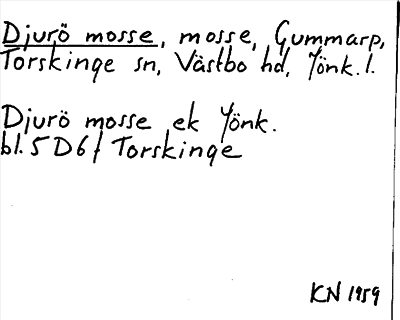 Djurö mosse, mosse, Gummarp,
Torskinge sn, Västbo hd, Jönk. l.
Djurö mosse ek Jönk.
bl. 5 D 6 f Torskinge
KN 1959